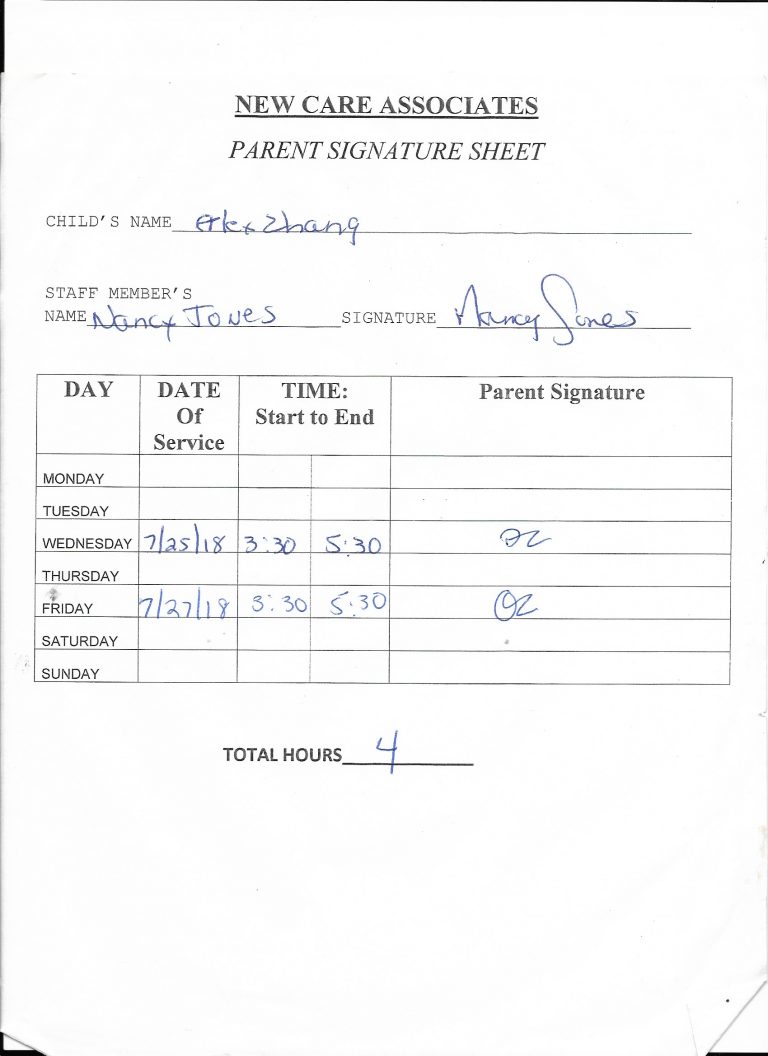 NEW CARE ASSOCIATES
PARENT SIGNATURE SHEET
CHILD'S NAME Alex Zhang
STAFF MEMBER'S
NAME Nancy Jones SIGNATURE Nancy Jones
DAY DATE Of Service TIME: Start to End Parent Signature
MONDAY
TUESDAY
WEDNESDAY 7/25/18 3:30 5:30
THURSDAY
FRIDAY 7/27/18 3:30 5:30 OZ
SATURDAY
SUNDAY
TOTAL HOURS 4